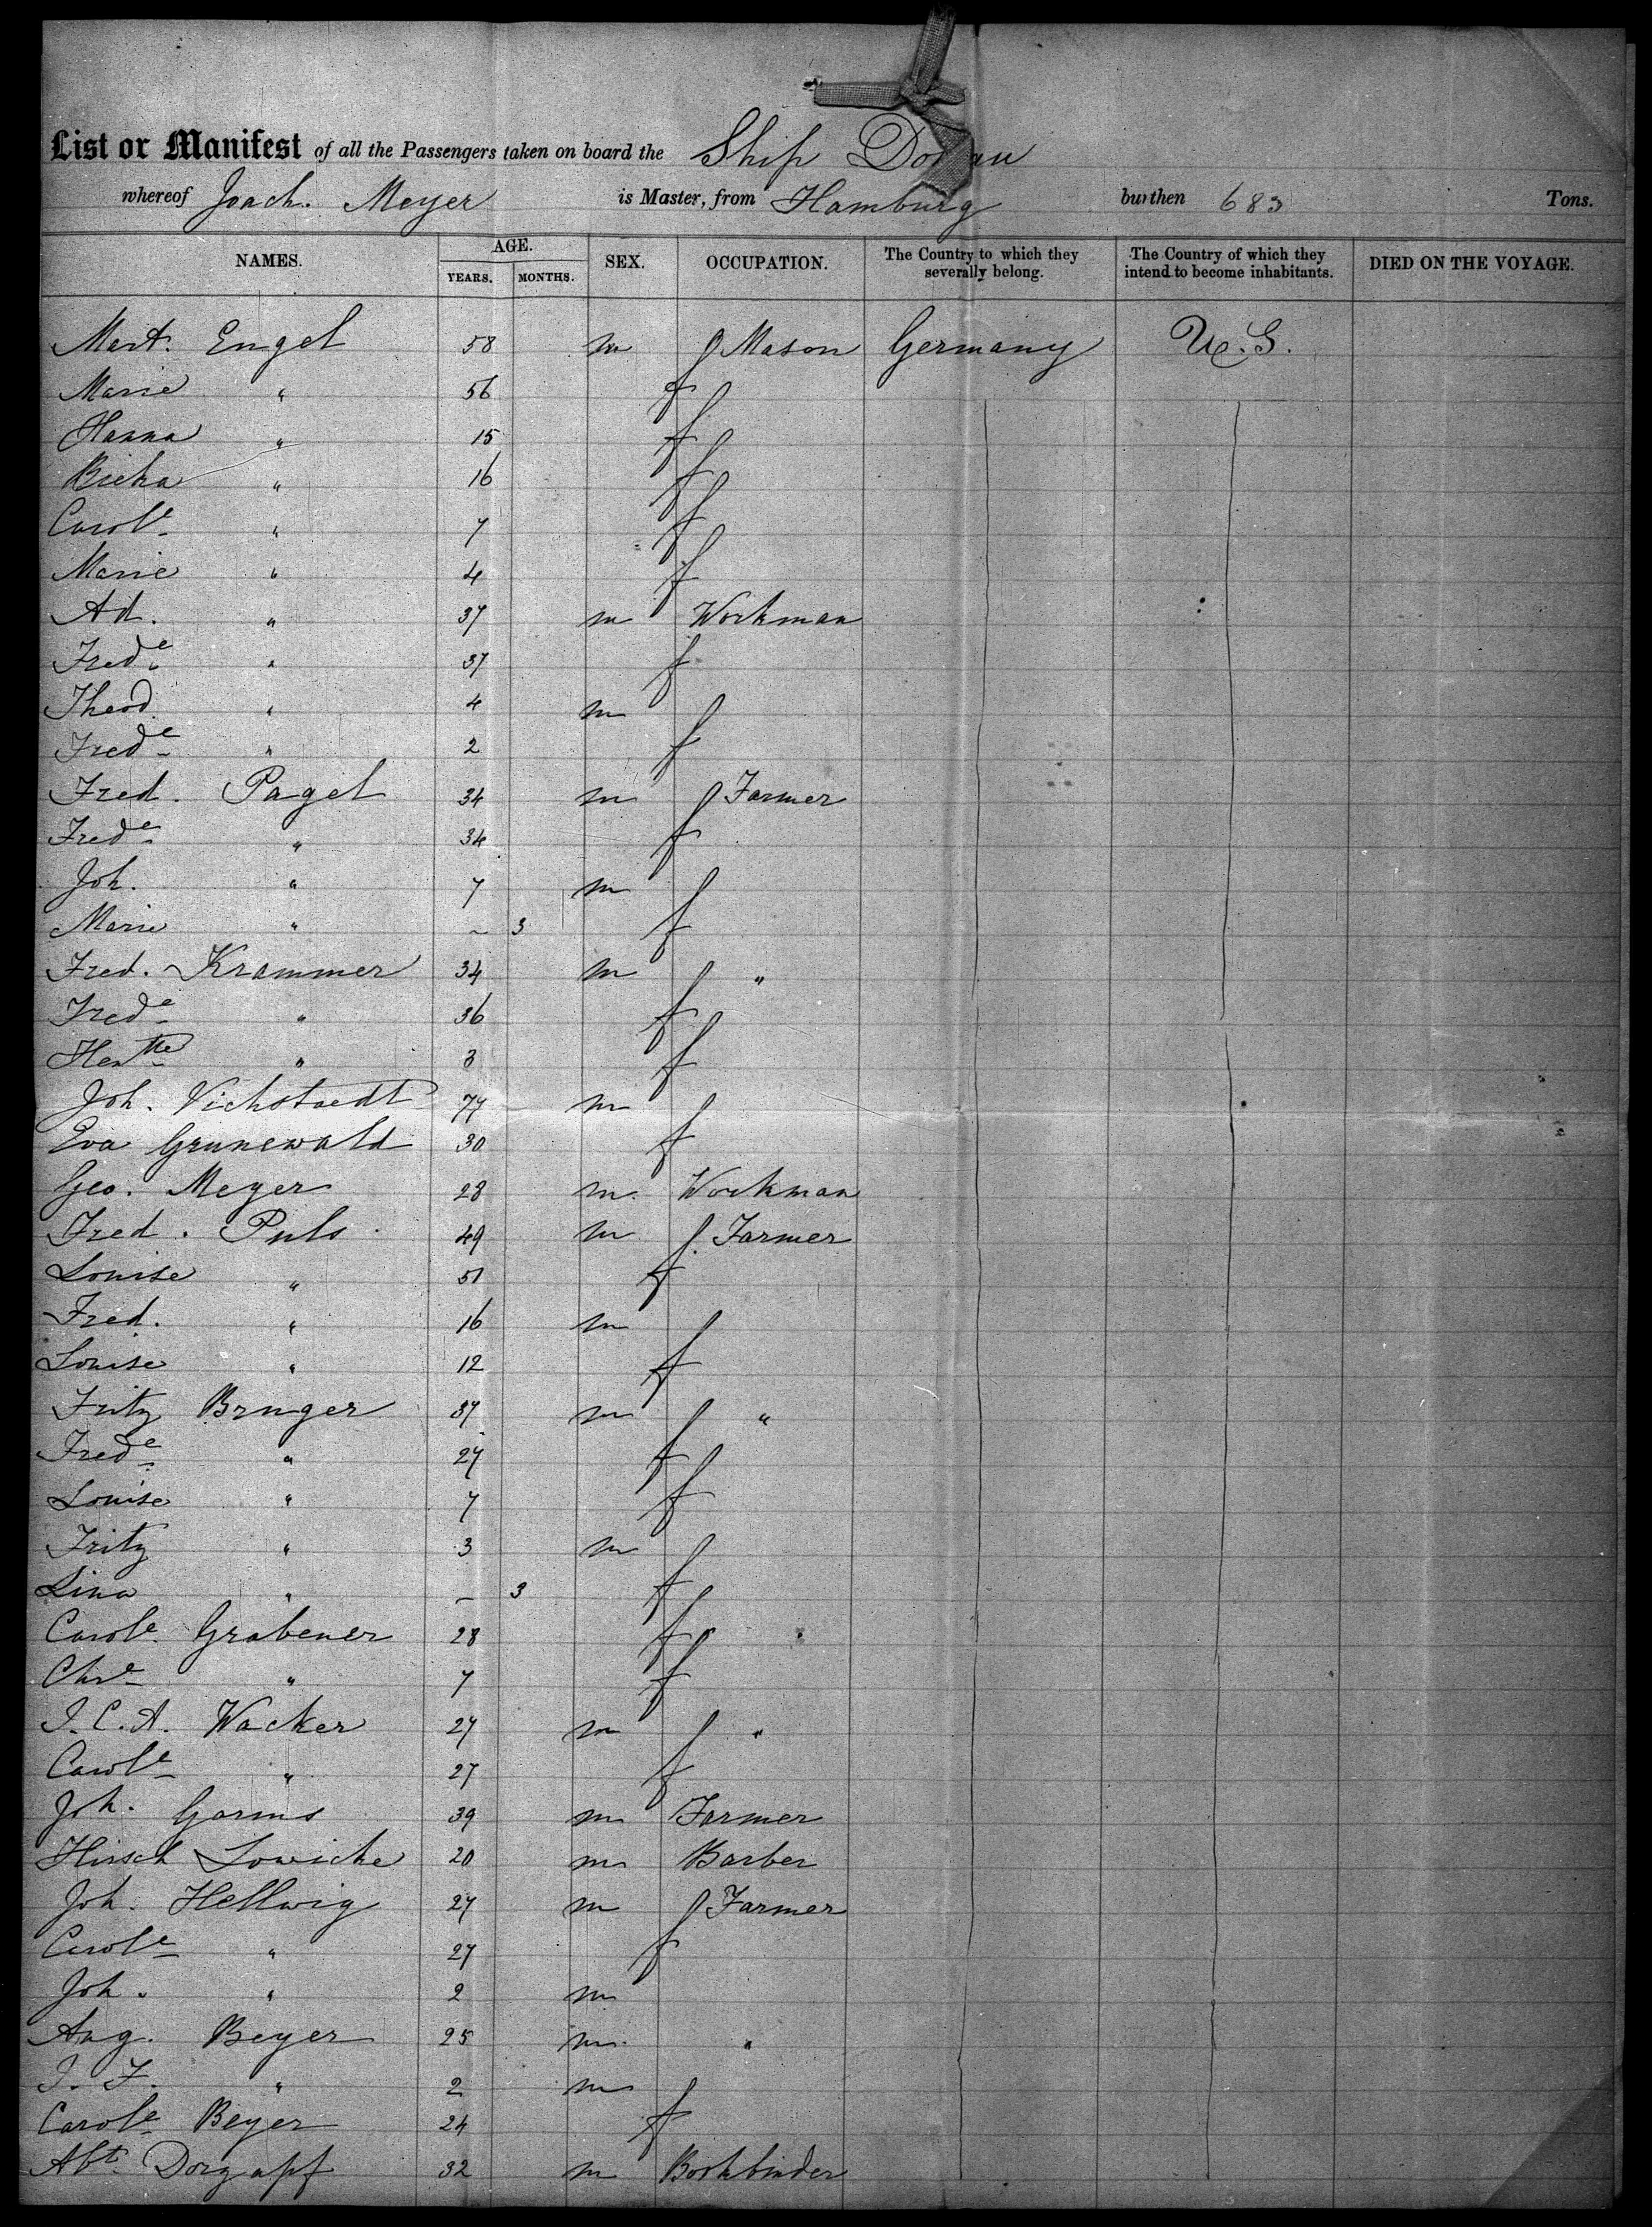 List or Manifest of all the Passengers taken on board the Ship Donau
whereof Joach. Meyer is Master, from Hamburg burthen 683 Tons.
NAMES. AGE. YEARS. MONTHS. SEX. OCCUPATION. The Country to which they severally belong. The Country of which they intend to become inhabitants. DIED ON THE VOYAGE.
Mart. Engel 58 m Mason Germany U.S.
Marie " 56 f
Hanna " 15 f
Rieka " 16 f
Carole " 7 f
Marie " 4 f
Ad. " 37 m Workman
Frede " 37 f
Theod. " 4 m
Frede " 2 f
Fred. Pagel 34 m Farmer
Frede " 34 f
Joh. " 7 m
Marie " ~ 3 f
Fred. Krammer 34 m "
Frede " 36 f
Hentte " 3 f
Joh. Vichstaedt 77 m
Eva Grunewald 30 f
Geo. Meyer 28 m Workman
Fred. Puls 49 m Farmer
Louise " 51 f
Fred. " 16 m
Louise " 12 f
Fritz Bruger 37 m "
Frede " 27 f
Louise " 7 f
Fritz " 3 m
Lina " - 3 f
Carole Grabener 28 f
Chre " 7 f
J.C.A. Wacker 27 m "
Carole " 27 f
Joh. Garms 39 m Farmer
Hirsch Lowicke 20 m Barber
Joh. Hellwig 27 m Farmer
Carole " 27 f
Joh. " 2 m
Aug. Beyer 25 m "
J. F. " 2 m
Carole Beyer 24 f
Abt. Dorzapf 32 m Bookbinder